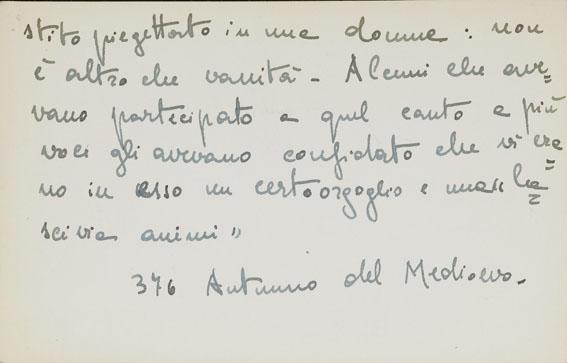 stito piegettato in una donna : non
è altro che vanità - Alcuni che ave=
vano partecipato a quel canto a più
voci gli avevano confidato che vi era=
no in esso un certo orgoglio e una « la=
scivia animi »
376 Autunno del Medioevo.